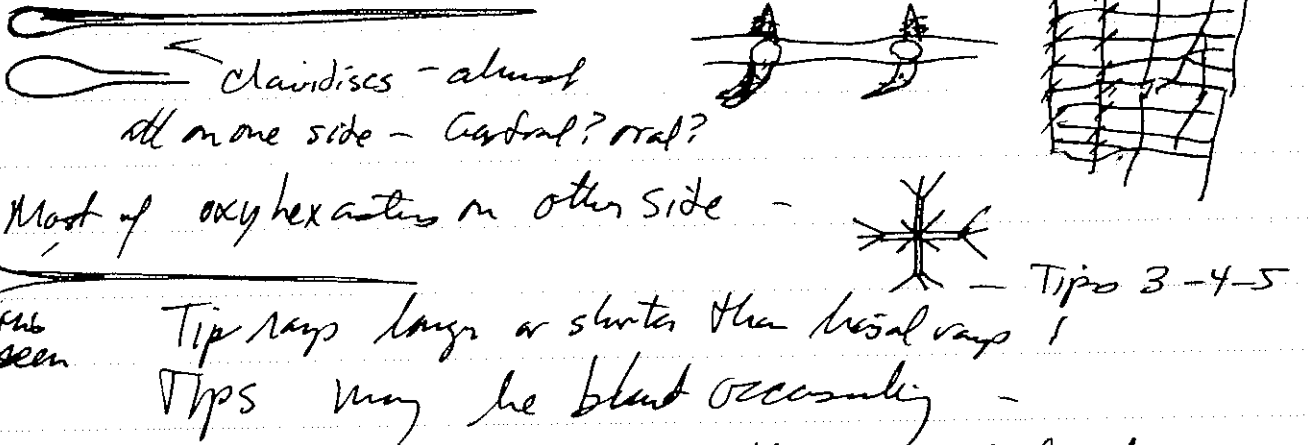 Clavidiscs - almost
all on one side - Gastral? oral?
Most of oxyhexasters on other side -
- Tips 3-4-5
this
seen
Tip rays longer or shorter than basal rays !
Tips may be blunt occasionally -